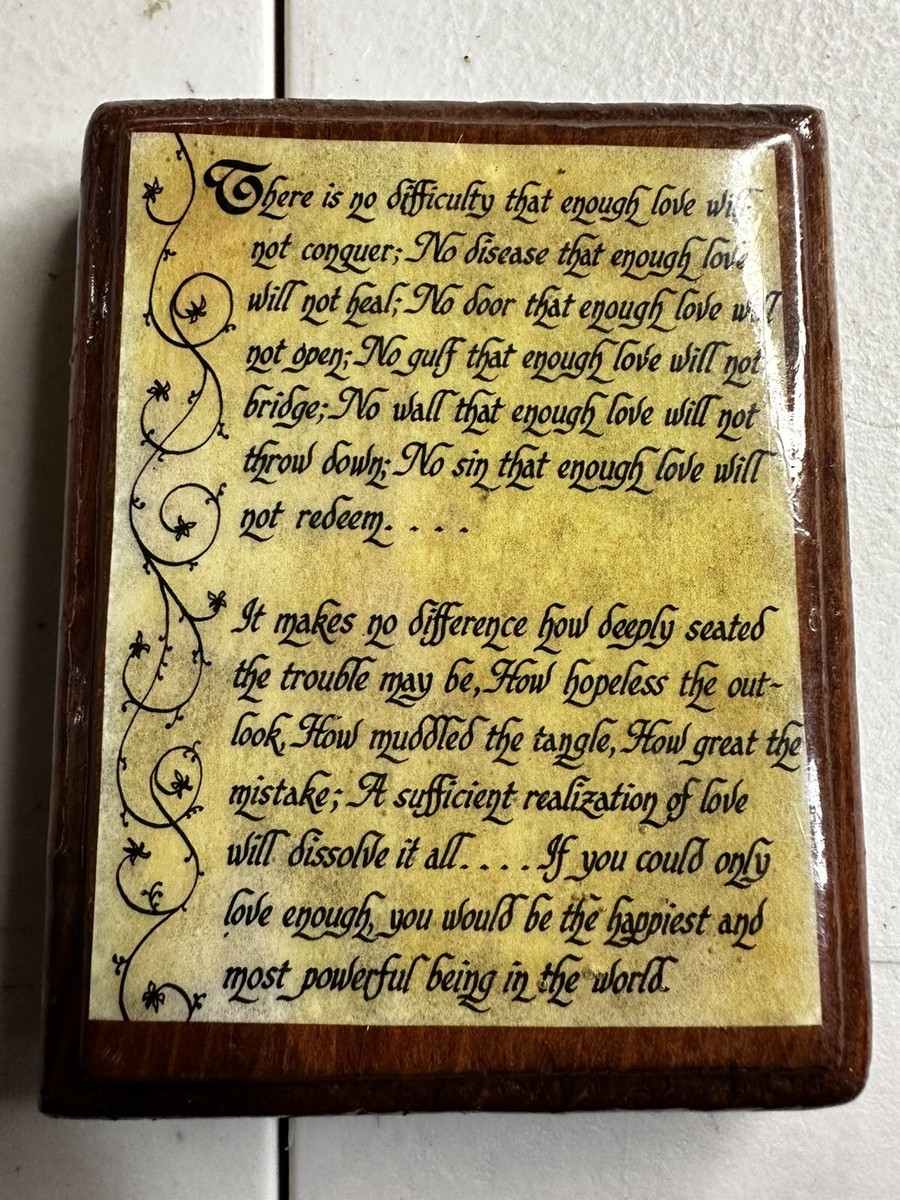 There is no difficulty that enough love will
not conquer; No disease that enough love
will not heal; No door that enough love will
not open; No gulf that enough love will not
bridge; No wall that enough love will not
throw down; No sin that enough love will
not redeem. . . .
It makes no difference how deeply seated
the trouble may be, How hopeless the out-
look, How muddled the tangle, How great the
mistake; A sufficient realization of love
will dissolve it all. . . . If you could only
love enough, you would be the happiest and
most powerful being in the world.